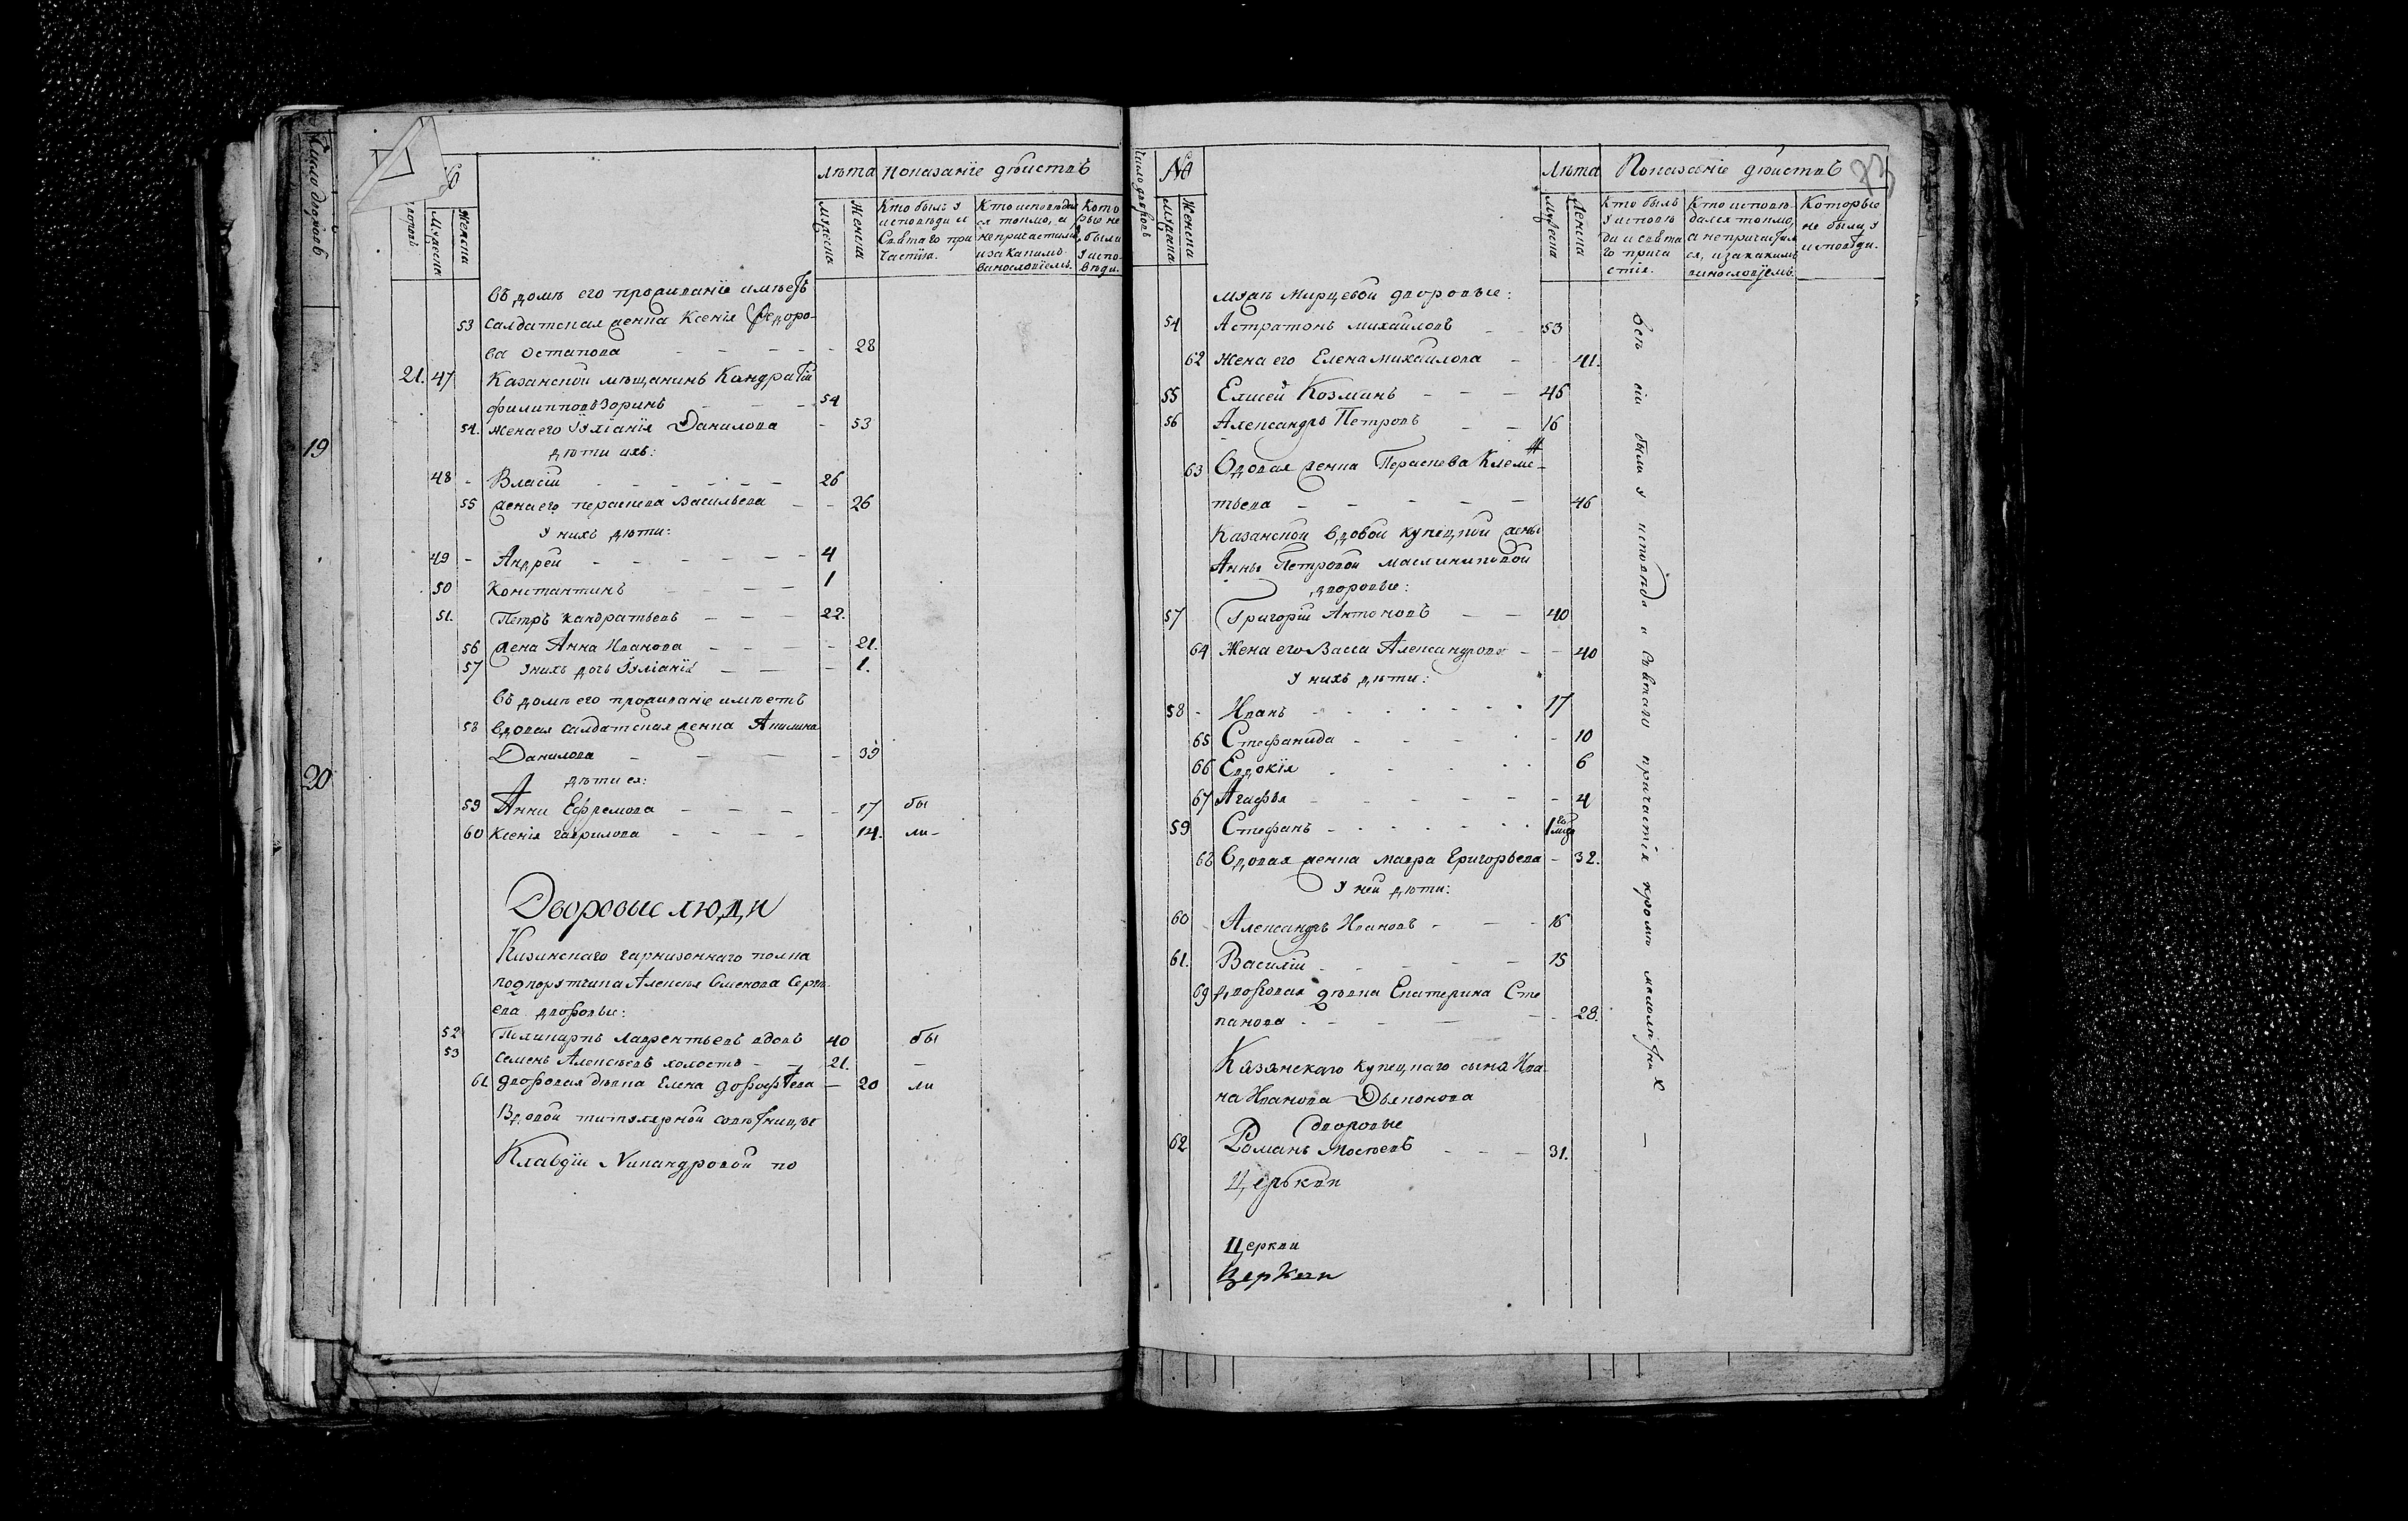 Число дворовъ
19
20
№
Мужеска
Женска
лѣта
показанїе дѣйствъ
мужеска
женска
Кто былъ у исповѣди и Святаго причастїя.
Кто исповѣдался токмо, а не причастился и за какимъ винословїемъ.
Которые не были у исповѣди.
въ домѣ его проживанїе имѣетъ
53 салдатская женка Ксенїя Ѳедоро-
ва Остапова - - - - 28
21. 47 Казанской мѣщанинъ Кондратїй
филипповъ Зоринъ - - - 54
54. жена его Іулїанїя Данилова - 53
дѣти ихъ:
48 - Власїй - - - - - 26
55 жена его параскева Васильева - - 26
У нихъ дѣти:
49 - Андрей - - - - - 4
50 Константинъ - - - - 1
51. Петръ кандратьевъ - - - 22.
56 жена Анна Иванова - - - - 21.
57 У нихъ дочь Іулїанїя - - - 1.
въ домѣ его проживанїе имѣетъ
58 вдовая салдатская женка Акилина
Данилова - - - - 39
дѣти ея:
59 Анна Ефремова - - - - 17 бы
60 Ксенїя гаврилова - - - - 14. ли-
Дворовые люди
Казанскаго гарнизоннаго полка
подпорутчика Алексѣя Семенова Серге
ева дворовые:
52 Поликарпъ лаврентьевъ вдовъ 40 бы
53 Семенъ Алексѣевъ холостъ - - 21. -
61 дворовая дѣвка Елена дорофѣева - 20 ли
Вдовой титулярной совѣтницы
Клавдїи Никандровой по
Число дворовъ
№
Мужеска
Женска
Лѣта
Показанїе дѣйствъ
83
Мужеска
Женска
Кто былъ у исповѣди и святаго причастїя.
Кто исповѣдался токмо, а не причастился, и за какимъ винословїемъ.
Которые не были у исповѣди.
дворовые:
54 Астратонъ михайловъ - - 53
62 Жена его Елена михайлова - - 41.
55 Елисей Козминъ - - - 45
56 Александръ Петровъ - - 16
63 Вдовая женка Параскева Клеме-
тьева - - - - - 46
Казанской вдовой купецкой жены
Анны Петровой масленниковой
дворовые:
57 Григорїй Антоновъ - - 40
64 Жена его Васса Александрова - - 40
У нихъ дѣти:
58 - Иванъ - - - - - 17
65 Стефанида - - - - - 10
66 Евдокїя - - - - 6
67 Агафья - - - - - 4
59 Стефанъ - - - - - 1 го
68 Вдовая женка мавра Григорьева - 32.
У ней дѣти:
60 Александръ Ивановъ - - - 16
61. Василїй - - - - - 15
69 дворовая дѣвка Екатерина Сте
панова - - - - - 28.
Казанскаго купецкаго сына Ива
на Иванова Дьяконова
дворовые
62 Романъ Мосѣевъ - - - 31.
Церькви
Церкви
Церкви
Всѣ сїи были у исповѣди и Святаго причастїя кромѣ малолѣтныхъ -